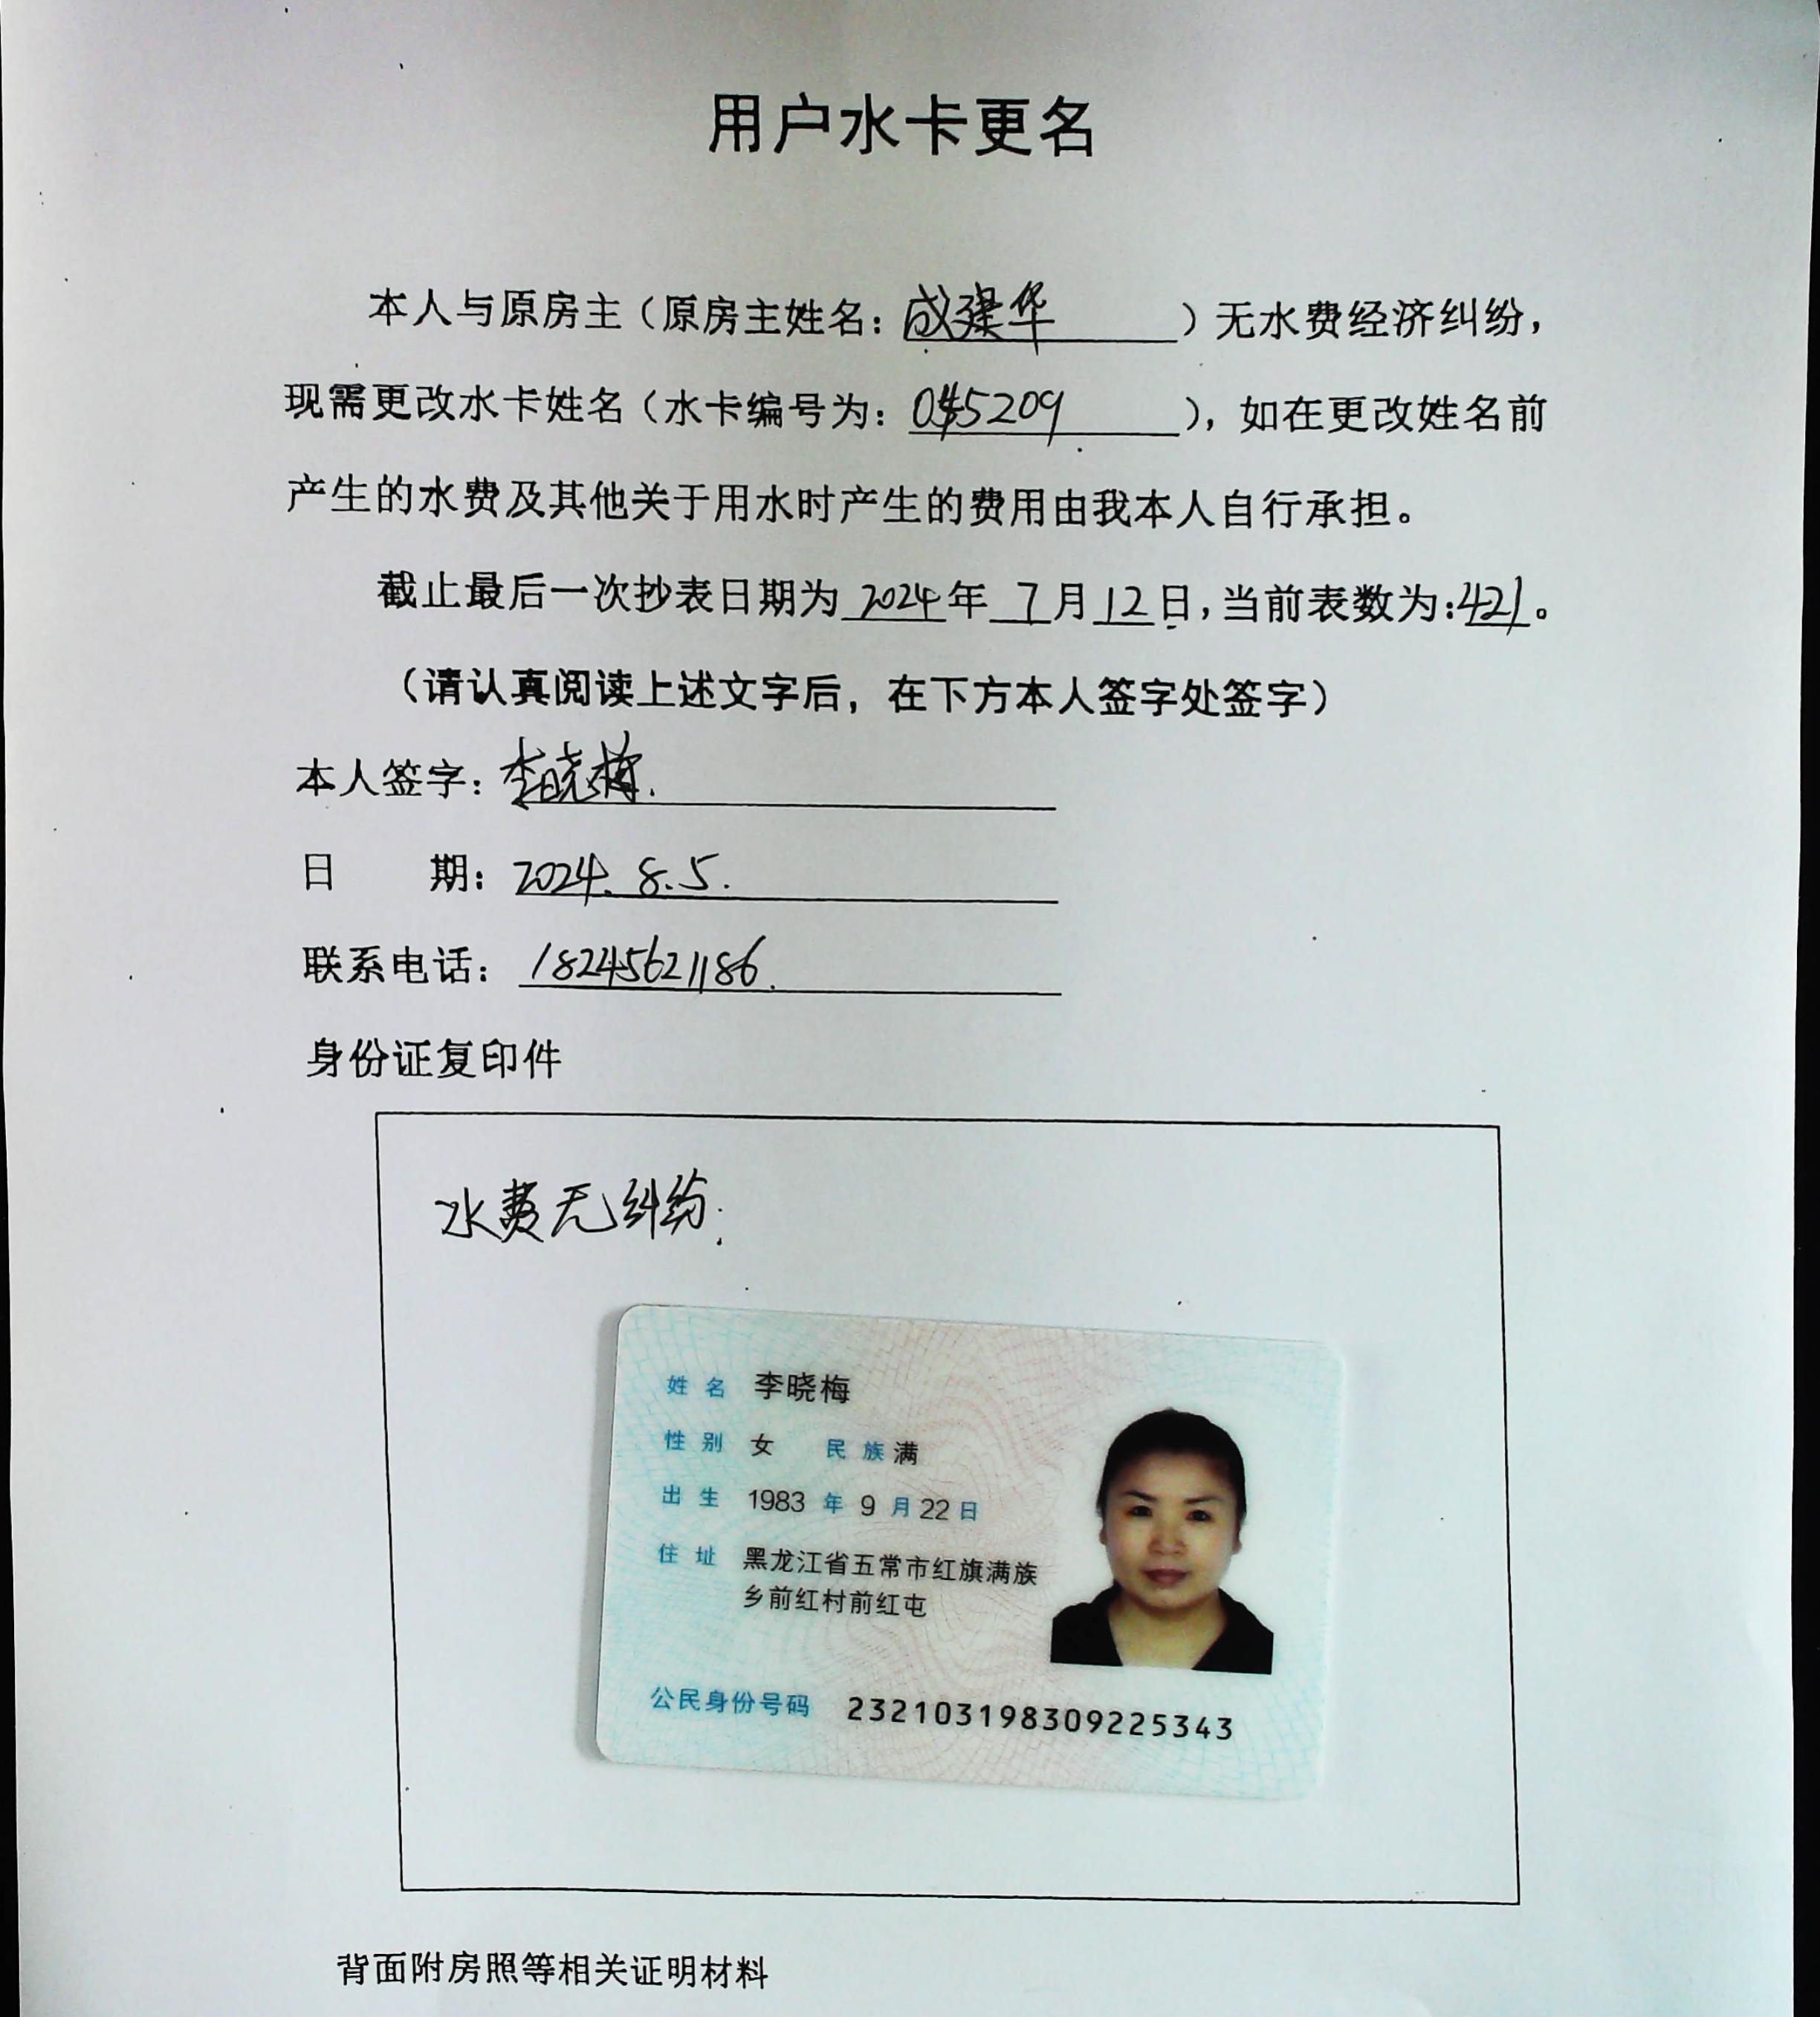 用户水卡更名
本人与原房主（原房主姓名：成建华）无水费经济纠纷，
现需更改水卡姓名（水卡编号为：045209），如在更改姓名前
产生的水费及其他关于用水时产生的费用由我本人自行承担。
截止最后一次抄表日期为2024年7月12日，当前表数为：421。
（请认真阅读上述文字后，在下方本人签字处签字）
本人签字：李晓梅.
日 期：2024.8.5.
联系电话：18245621186.
身份证复印件
水费无纠纷.
姓名 李晓梅
性别 女 民族 满
出生 1983年9月22日
住址 黑龙江省五常市红旗满族
乡前红村前红屯
公民身份号码 232103198309225343
背面附房照等相关证明材料